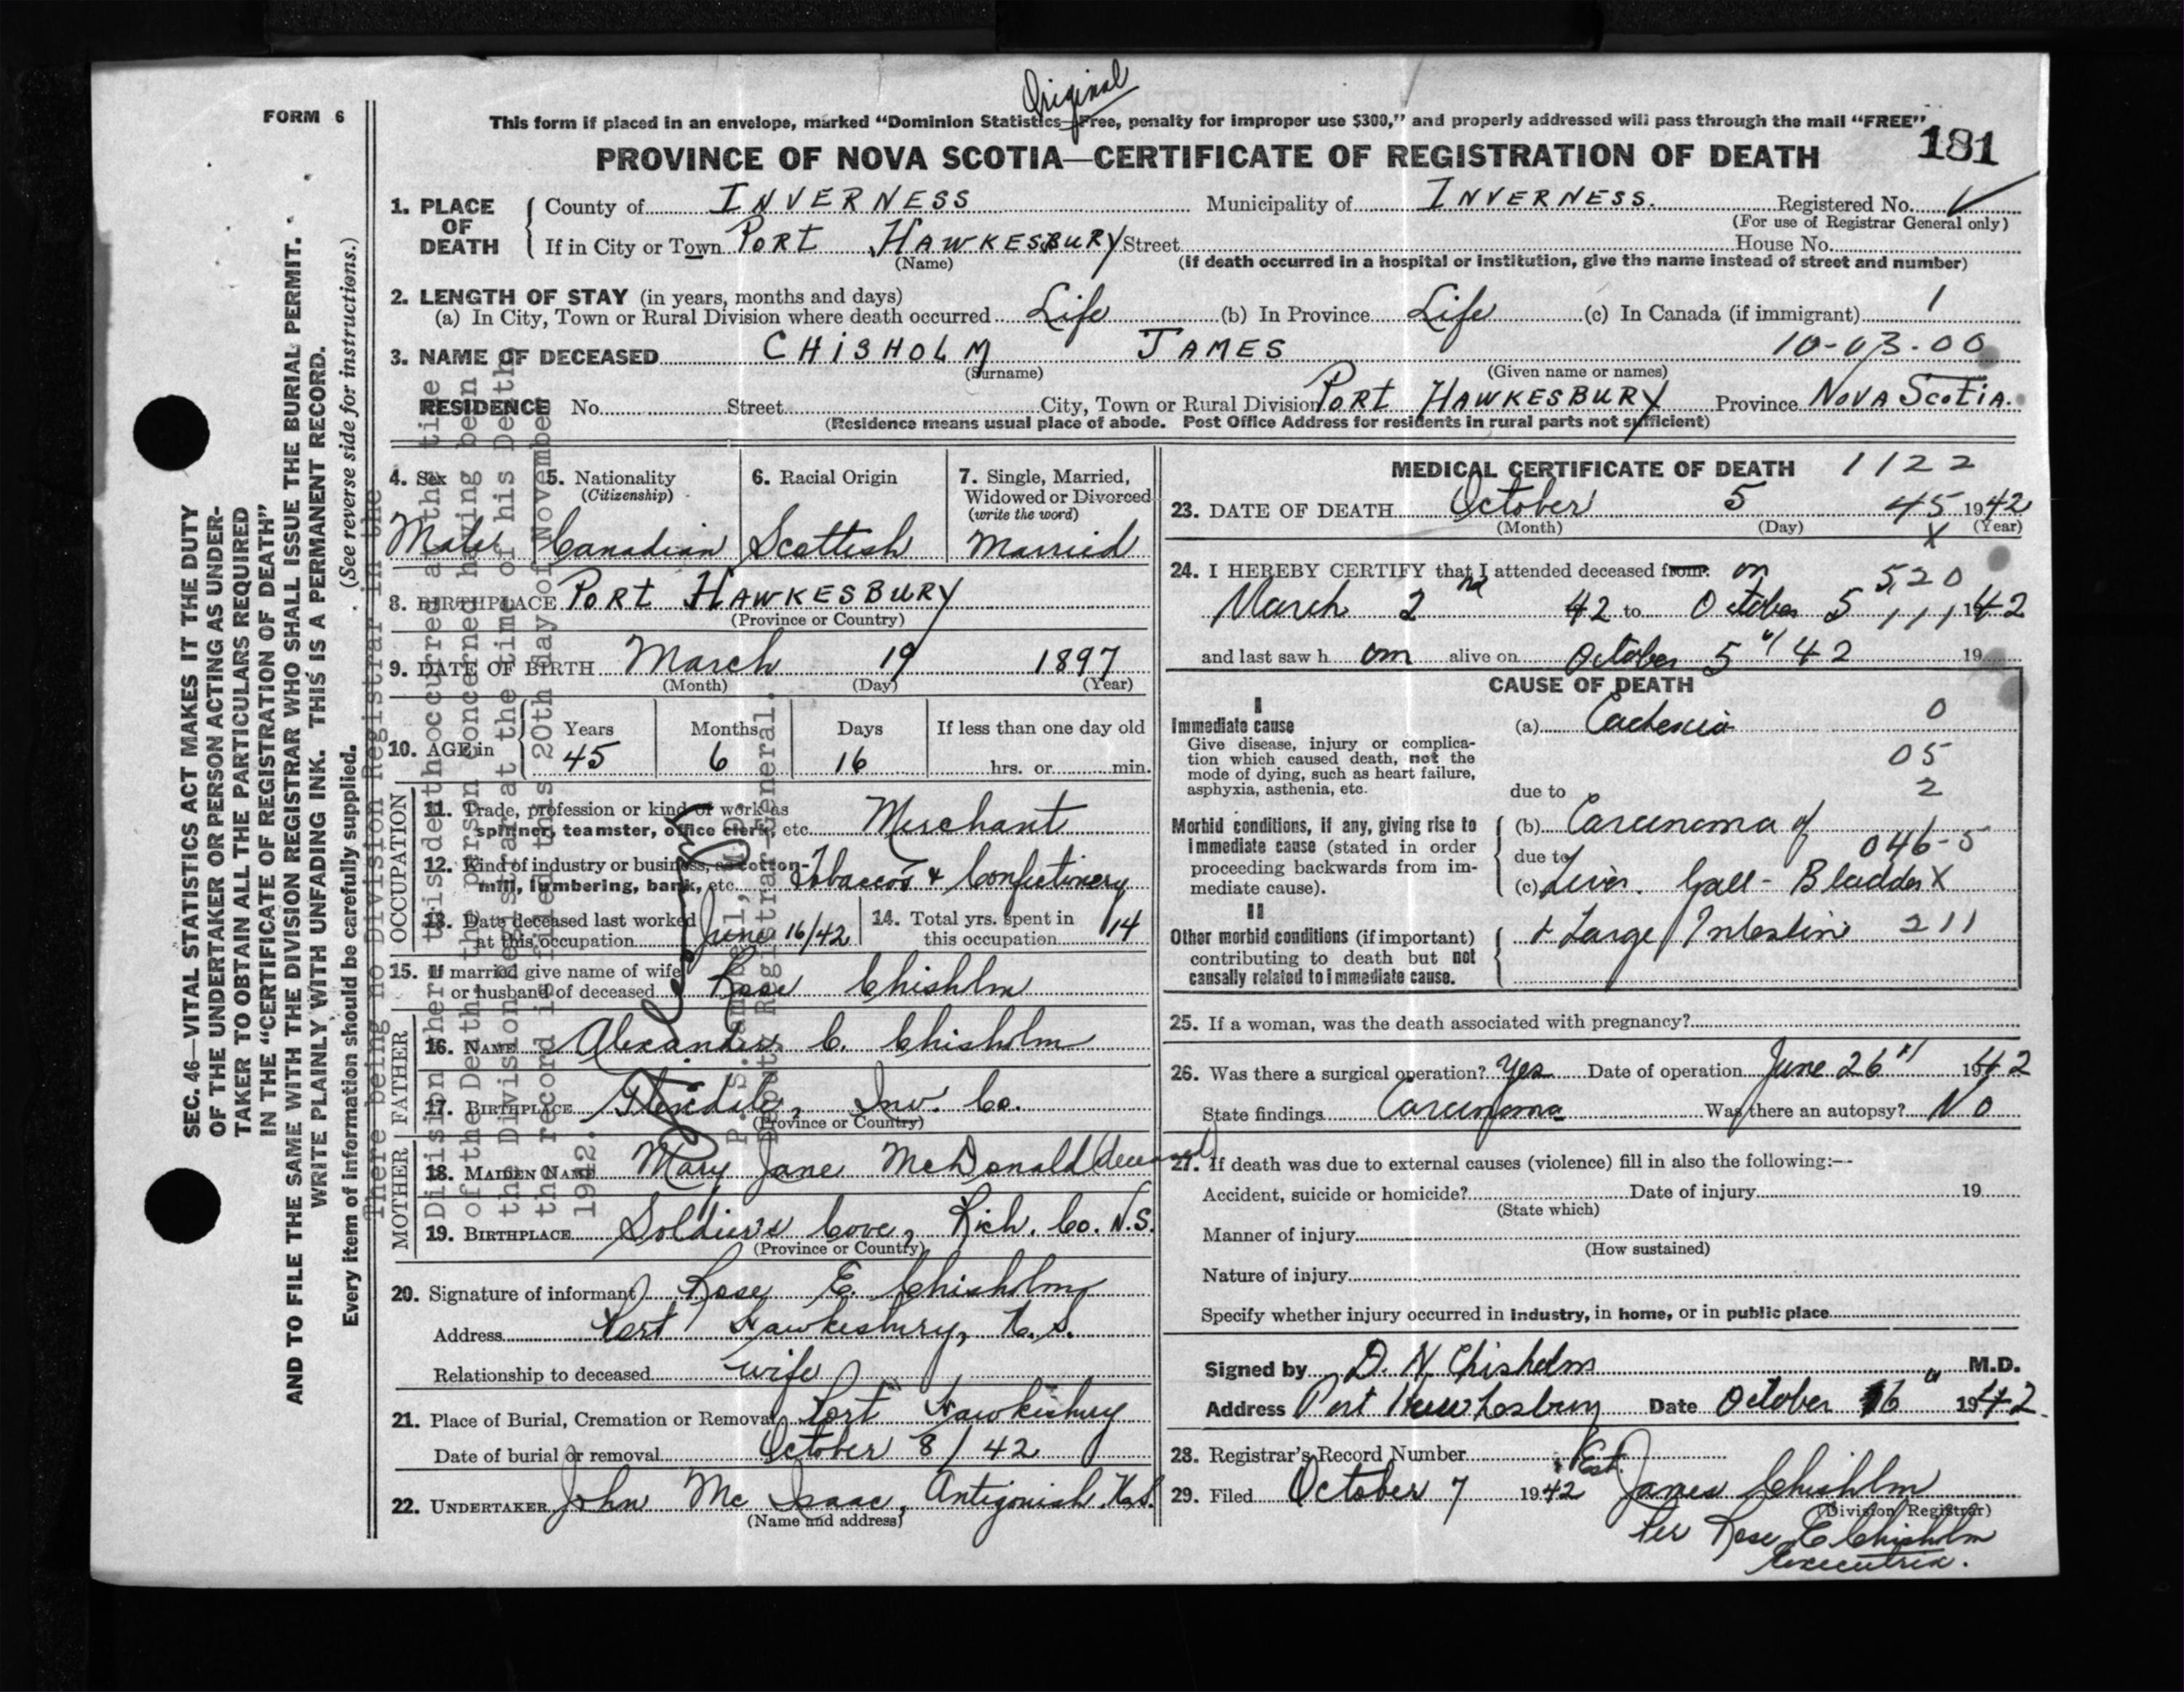 Original
FORM 6
This form if placed in an envelope, marked “Dominion Statistics—Free, penalty for improper use $300,” and properly addressed will pass through the mail “FREE”
PROVINCE OF NOVA SCOTIA—CERTIFICATE OF REGISTRATION OF DEATH 181
1. PLACE OF DEATH County of INVERNESS Municipality of INVERNESS. Registered No.
(For use of Registrar General only)
If in City or Town PORT HAWKESBURY Street House No.
(Name) (If death occurred in a hospital or institution, give the name instead of street and number)
2. LENGTH OF STAY (in years, months and days)
(a) In City, Town or Rural Division where death occurred Life (b) In Province Life (c) In Canada (if immigrant) 1
3. NAME OF DECEASED CHISHOLM JAMES 10-03-00
(Surname) (Given name or names)
RESIDENCE No. Street City, Town or Rural Division PORT HAWKESBURY Province NOVA SCOTIA.
(Residence means usual place of abode. Post Office Address for residents in rural parts not sufficient)
4. Sex 5. Nationality 6. Racial Origin 7. Single, Married,
(Citizenship) Widowed or Divorced
(write the word)
Male Canadian Scottish Married
8. BIRTHPLACE PORT HAWKESBURY
(Province or Country)
9. DATE OF BIRTH March 19 1897
(Month) (Day) (Year)
Years Months Days If less than one day old
10. AGE in 45 6 16 hrs. or min.
OCCUPATION
11. Trade, profession or kind of work as
spinner, teamster, office clerk, etc. Merchant
12. Kind of industry or business, as cotton-
mill, lumbering, bank, etc. Tobaccos & Confectionery
13. Date deceased last worked
at this occupation June 16/42
14. Total yrs. spent in
this occupation 14
15. If married give name of wife
or husband of deceased Rose Chisholm
FATHER
16. NAME Alexander C. Chisholm
17. BIRTHPLACE Glendale, Inv. Co.
(Province or Country)
MOTHER
18. MAIDEN NAME Mary Jane McDonald (deceased)
19. BIRTHPLACE Soldier's Cove, Rich. Co. N.S.
(Province or Country)
20. Signature of informant Rose E. Chisholm
Address Port Hawkesbury, N.S.
Relationship to deceased wife
21. Place of Burial, Cremation or Removal Port Hawkesbury
Date of burial or removal October 8/42
22. UNDERTAKER John Mc Isaac, Antigonish N.S.
(Name and address)
MEDICAL CERTIFICATE OF DEATH 1122
23. DATE OF DEATH October 5 45 1942
(Month) (Day) X (Year)
24. I HEREBY CERTIFY that I attended deceased from: on 520
March 2nd 42 to October 5 1942
and last saw h om alive on October 5 " 42 19
CAUSE OF DEATH
I
Immediate cause (a) Cachexia 0
Give disease, injury or complica-
tion which caused death, not the 05
mode of dying, such as heart failure,
asphyxia, asthenia, etc. due to 2
Morbid conditions, if any, giving rise to (b) Carcinoma of
immediate cause (stated in order due to 046-5
proceeding backwards from im-
mediate cause). (c) Liver. Gall-Bladder X
II
Other morbid conditions (if important) + Large Intestine 211
contributing to death but not
causally related to immediate cause.
25. If a woman, was the death associated with pregnancy?
26. Was there a surgical operation? Yes Date of operation June 26" 1942
State findings Carcinoma Was there an autopsy? No
27. If death was due to external causes (violence) fill in also the following:—
Accident, suicide or homicide? Date of injury 19
(State which)
Manner of injury
(How sustained)
Nature of injury
Specify whether injury occurred in industry, in home, or in public place
Signed by D. H. Chisholm M.D.
Address Port Hawkesbury Date October 16" 1942.
28. Registrar's Record Number
29. Filed October 7 1942 Est. James Chisholm
(Division Registrar)
Per Rose E Chisholm
Executrix.
SEC. 46—VITAL STATISTICS ACT MAKES IT THE DUTY
OF THE UNDERTAKER OR PERSON ACTING AS UNDER-
TAKER TO OBTAIN ALL THE PARTICULARS REQUIRED
IN THE “CERTIFICATE OF REGISTRATION OF DEATH”
AND TO FILE THE SAME WITH THE DIVISION REGISTRAR WHO SHALL ISSUE THE BURIAL PERMIT.
WRITE PLAINLY WITH UNFADING INK. THIS IS A PERMANENT RECORD.
Every item of information should be carefully supplied. (See reverse side for instructions.)
There being no Division Registrar in the
Division where this death occurred at the time
of the Death the person concerned having been
the Division Registrar at the time of his Death
the record is filed this 20th day of November
1942.
Deputy Registrar-General.